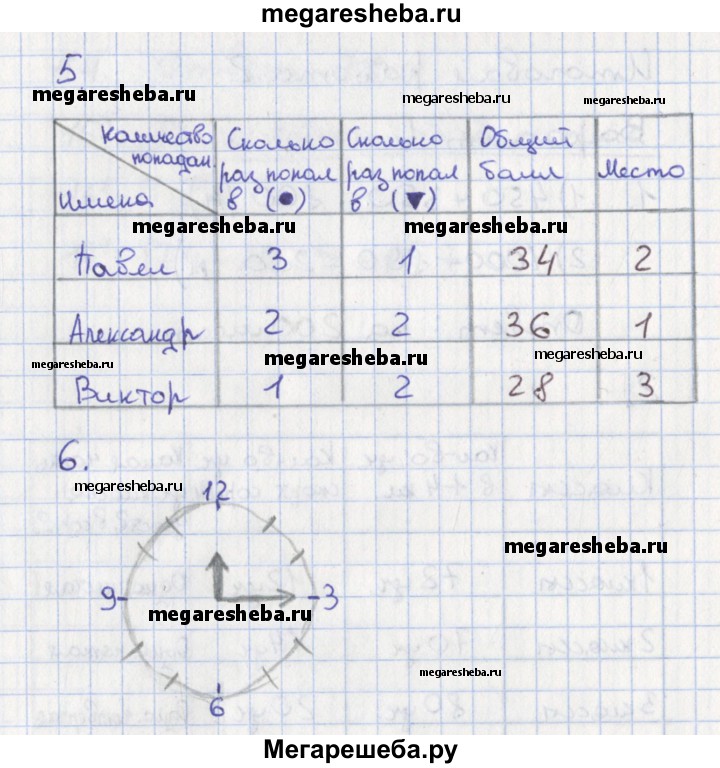 megaresheba.ru
5.
megaresheba.ru
megaresheba.ru
megaresheba.ru
Количество попадан.
Имена
Сколько раз попал в (●)
Сколько раз попал в (▼)
Общий балл
Место
megaresheba.ru
megaresheba.ru
Павел 3 1 34 2
Александр 2 2 36 1
megaresheba.ru
megaresheba.ru
megaresheba.ru
Виктор 1 2 28 3
6.
megaresheba.ru
12
megaresheba.ru
9 3
megaresheba.ru
megaresheba.ru
6
Мегарешеба.ру